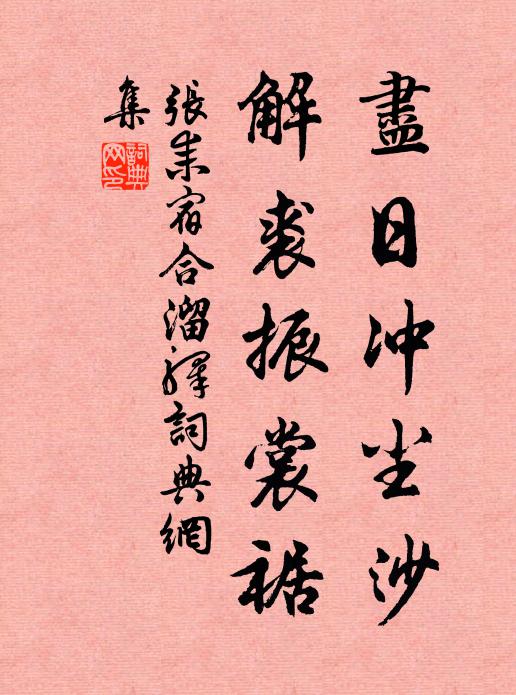 盡日冲尘沙
解裘振裳裾
張耒宿合溜驛詞典網
集
詞典網印